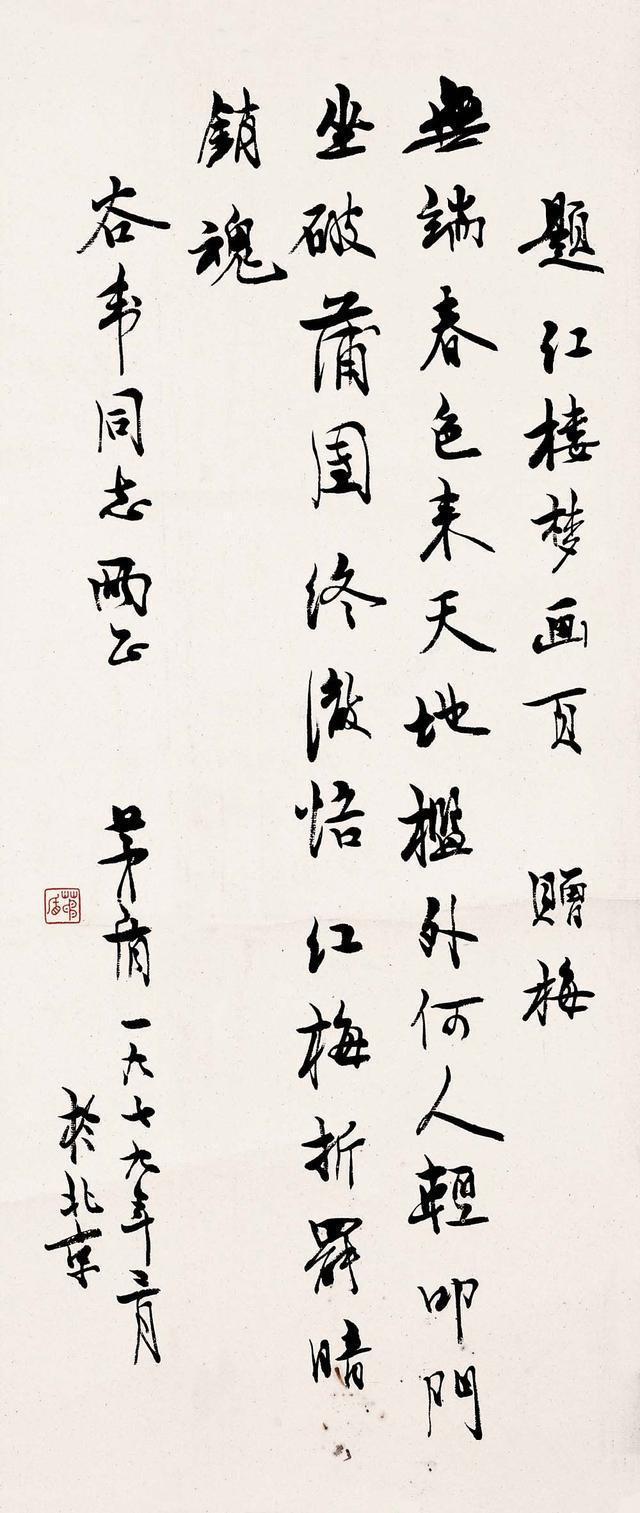 题红楼梦画页 贈梅
無端春色来天地檻外何人輕叩門
坐破蒲團终澈悟红梅折罷暗
銷魂
谷韦同志两正
茅盾一九七九年二月
於北京
茅盾